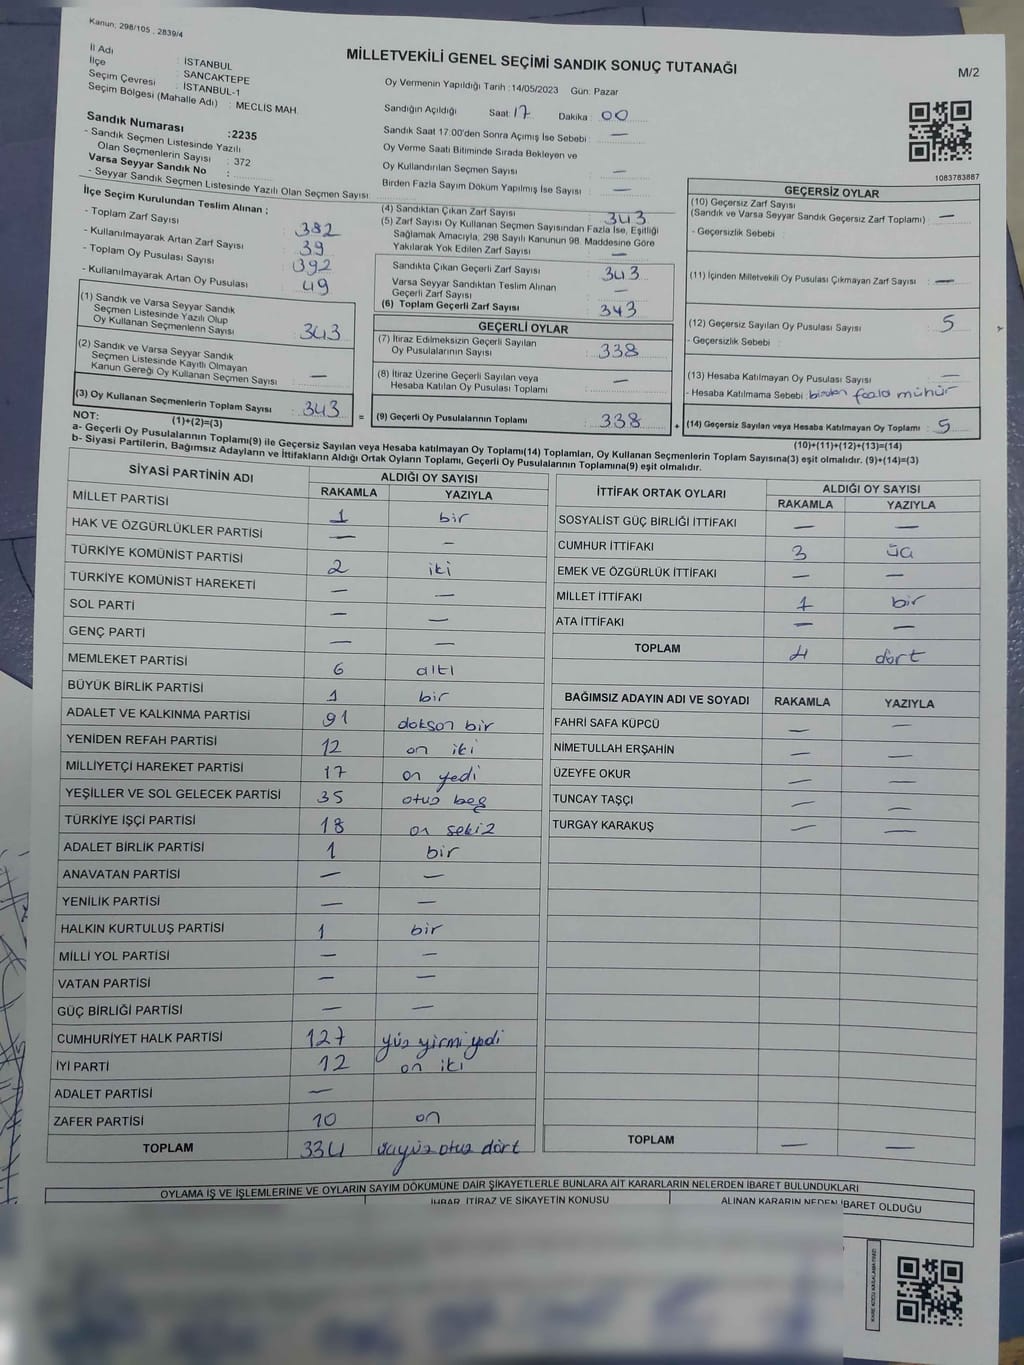 Kanun; 298/105 , 2839/4
MİLLETVEKİLİ GENEL SEÇİMİ SANDIK SONUÇ TUTANAĞI
M/2
İl Adı : İSTANBUL
İlçe : SANCAKTEPE
Seçim Çevresi : İSTANBUL-1
Seçim Bölgesi (Mahalle Adı) : MECLİS MAH.
Sandık Numarası :2235
- Sandık Seçmen Listesinde Yazılı
Olan Seçmenlerin Sayısı : 372
Varsa Seyyar Sandık No :
- Seyyar Sandık Seçmen Listesinde Yazılı Olan Seçmen Sayısı
Oy Vermenin Yapıldığı Tarih :14/05/2023 Gün: Pazar
Sandığın Açıldığı Saat: 17 Dakika : 00
Sandık Saat 17.00'den Sonra Açımış İse Sebebi : —
Oy Verme Saati Bitiminde Sırada Bekleyen ve
Oy Kullandırılan Seçmen Sayısı —
Birden Fazla Sayım Döküm Yapılmış İse Sayısı —
1083783887
İlçe Seçim Kurulundan Teslim Alınan ;
- Toplam Zarf Sayısı : 382
- Kullanılmayarak Artan Zarf Sayısı : 39
- Toplam Oy Pusulası Sayısı : 392
- Kullanılmayarak Artan Oy Pusulası : 49
(1) Sandık ve Varsa Seyyar Sandık
Seçmen Listesinde Yazılı Olup
Oy Kullanan Seçmenlerin Sayısı : 343
(2) Sandık ve Varsa Seyyar Sandık
Seçmen Listesinde Kayıtlı Olmayan
Kanun Gereği Oy Kullanan Seçmen Sayısı : —
(3) Oy Kullanan Seçmenlerin Toplam Sayısı : 343
(1)+(2)=(3)
(4) Sandıktan Çıkan Zarf Sayısı : 343
(5) Zarf Sayısı Oy Kullanan Seçmen Sayısından Fazla İse, Eşitliği
Sağlamak Amacıyla, 298 Sayılı Kanunun 98. Maddesine Göre
Yakılarak Yok Edilen Zarf Sayısı : —
Sandıkta Çıkan Geçerli Zarf Sayısı : 343
Varsa Seyyar Sandıktan Teslim Alınan
Geçerli Zarf Sayısı : —
(6) Toplam Geçerli Zarf Sayısı : 343
GEÇERLİ OYLAR
(7) İtiraz Edilmeksizin Geçerli Sayılan
Oy Pusulalarının Sayısı : 338
(8) İtiraz Üzerine Geçerli Sayılan veya
Hesaba Katılan Oy Pusulası Toplamı : —
= (9) Geçerli Oy Pusulalarının Toplamı : 338 +
GEÇERSİZ OYLAR
(10) Geçersiz Zarf Sayısı
(Sandık ve Varsa Seyyar Sandık Geçersiz Zarf Toplamı) : —
- Geçersizlik Sebebi :
(11) İçinden Milletvekili Oy Pusulası Çıkmayan Zarf Sayısı : —
(12) Geçersiz Sayılan Oy Pusulası Sayısı : 5
- Geçersizlik Sebebi :
(13) Hesaba Katılmayan Oy Pusulası Sayısı : —
- Hesaba Katılmama Sebebi : birden fazla mühür
(14) Geçersiz Sayılan veya Hesaba Katılmayan Oy Toplamı : 5
(10)+(11)+(12)+(13)=(14)
NOT:
a- Geçerli Oy Pusulalarının Toplamı(9) ile Geçersiz Sayılan veya Hesaba katılmayan Oy Toplamı(14) Toplamları, Oy Kullanan Seçmenlerin Toplam Sayısına(3) eşit olmalıdır. (9)+(14)=(3)
b- Siyasi Partilerin, Bağımsız Adayların ve İttifakların Aldığı Ortak Oyların Toplamı, Geçerli Oy Pusulalarının Toplamına(9) eşit olmalıdır.
SİYASİ PARTİNİN ADI ALDIĞI OY SAYISI
RAKAMLA YAZIYLA
MİLLET PARTİSİ 1 bir
HAK VE ÖZGÜRLÜKLER PARTİSİ — —
TÜRKİYE KOMÜNİST PARTİSİ 2 iki
TÜRKİYE KOMÜNİST HAREKETİ — —
SOL PARTİ — —
GENÇ PARTİ — —
MEMLEKET PARTİSİ 6 altı
BÜYÜK BİRLİK PARTİSİ 1 bir
ADALET VE KALKINMA PARTİSİ 91 doksan bir
YENİDEN REFAH PARTİSİ 12 on iki
MİLLİYETÇİ HAREKET PARTİSİ 17 on yedi
YEŞİLLER VE SOL GELECEK PARTİSİ 35 otuz beş
TÜRKİYE İŞÇİ PARTİSİ 18 on sekiz
ADALET BİRLİK PARTİSİ 1 bir
ANAVATAN PARTİSİ — —
YENİLİK PARTİSİ — —
HALKIN KURTULUŞ PARTİSİ 1 bir
MİLLİ YOL PARTİSİ — —
VATAN PARTİSİ — —
GÜÇ BİRLİĞİ PARTİSİ — —
CUMHURİYET HALK PARTİSİ 127 yüz yirmi yedi
İYİ PARTİ 12 on iki
ADALET PARTİSİ —
ZAFER PARTİSİ 10 on
TOPLAM 334 üçyüz otuz dört
İTTİFAK ORTAK OYLARI ALDIĞI OY SAYISI
RAKAMLA YAZIYLA
SOSYALİST GÜÇ BİRLİĞİ İTTİFAKI — —
CUMHUR İTTİFAKI 3 üç
EMEK VE ÖZGÜRLÜK İTTİFAKI — —
MİLLET İTTİFAKI 1 bir
ATA İTTİFAKI — —
TOPLAM 4 dört
BAĞIMSIZ ADAYIN ADI VE SOYADI RAKAMLA YAZIYLA
FAHRİ SAFA KÜPCÜ — —
NİMETULLAH ERŞAHİN — —
ÜZEYFE OKUR — —
TUNCAY TAŞÇI — —
TURGAY KARAKUŞ — —
TOPLAM — —
OYLAMA İŞ VE İŞLEMLERİNE VE OYLARIN SAYIM DÖKÜMÜNE DAİR ŞİKAYETLERLE BUNLARA AİT KARARLARIN NELERDEN İBARET BULUNDUKLARI
İHBAR, İTİRAZ VE ŞİKAYETİN KONUSU
ALINAN KARARIN NEDEN İBARET OLDUĞU